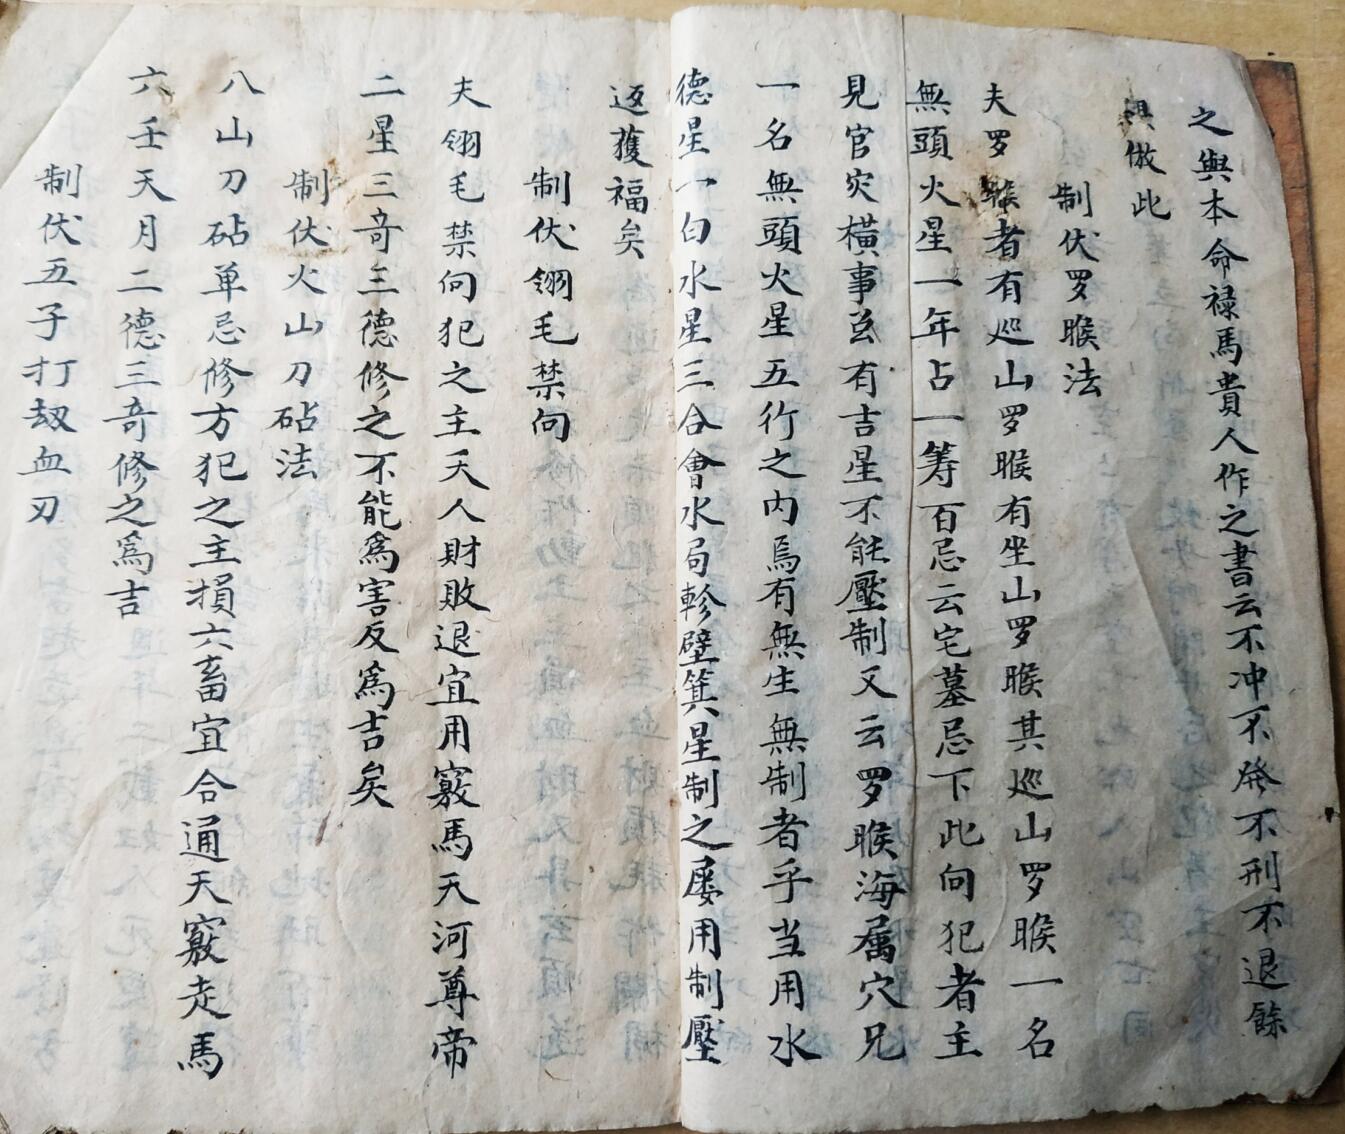 之與本命禄馬貴人作之書云不冲不發不刑不退餘
倣此
制伏罗睺法
夫罗睺者有巡山罗睺有坐山罗睺其巡山罗睺一名
無頭火星一年占一筹百忌云宅墓忌下此向犯者主
見官灾横事玄有吉星不能壓制又云罗睺海属穴兄
一名無頭火星五行之内焉有無生無制者乎当用水
德星一白水星三合會水局軫壁箕星制之屡用制壓
返獲福矣
制伏翎毛禁向
夫翎毛禁向犯之主夭人財敗退宜用竅馬天河尊帝
二星三奇三德修之不能爲害反爲吉矣
制伏火山刀砧法
八山刀砧单忌修方犯之主損六畜宜合通天竅走馬
六壬天月二德三奇修之爲吉
制伏五子打劫血刃